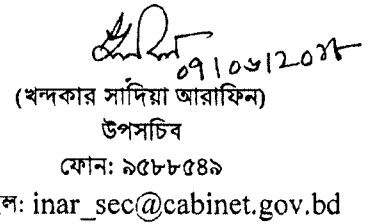 ০৭/০৬/২০১৮
(খন্দকার সাদিয়া আরাফিন)
উপসচিব
ফোন: ৯৫৮৮৫৪৯
ল: inar_sec@cabinet.gov.bd